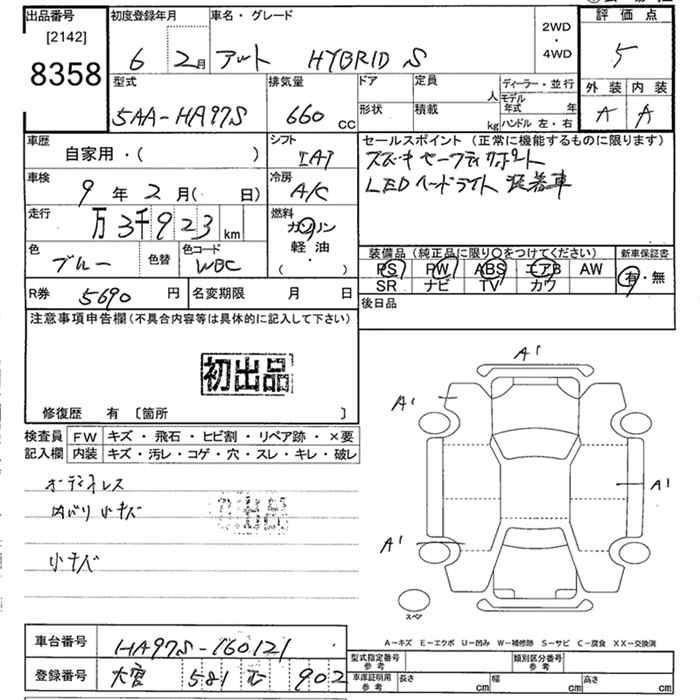 出品番号 初度登録年月 車名・グレード 2WD・4WD 評価点
[2142]
8358 6 2月 アルト HYBRID S 5
型式 排気量 ドア 定員 人 ディーラー・並行 外装 内装
5AA-HA97S 660 cc 形状 積載 kg モデル年式 年 ハンドル 左・右 A A
車歴 シフト セールスポイント(正常に機能するものに限ります)
自家用・( ) IAT スズキセーフティサポート
車検 冷房 LEDヘッドライト 装着車
9年2月( 日) A/C
走行 燃料
万3千923km ガソリン
軽・油
( )
色 色替 色コード 装備品(純正品に限り○をつけてください) 新車保証書
ブルー WBC PS PW ABS エアB AW 有・無
SR ナビ TV カワ
R券 5690円 名変期限 月 日 後日品
注意事項申告欄(不具合内容等は具体的に記入して下さい)
初出品
修復歴 有 〔箇所 〕
検査員 FW キズ・飛石・ヒビ割・リペア跡・×要
記入欄 内装 キズ・汚レ・コゲ・穴・スレ・キレ・破レ
オーディオレス
内バリ小キズ
小キズ
A1
A1
A1
A1
スペア
A-キズ E-エクボ U-凹み W-補修跡 S-サビ C-腐食 XX-交換済
車台番号 HA97S-160121
型式指定番号 参考 類別区分番号 参考
登録番号 大宮 581 902
車庫証明用 参考 長さ cm 幅 cm 高さ cm